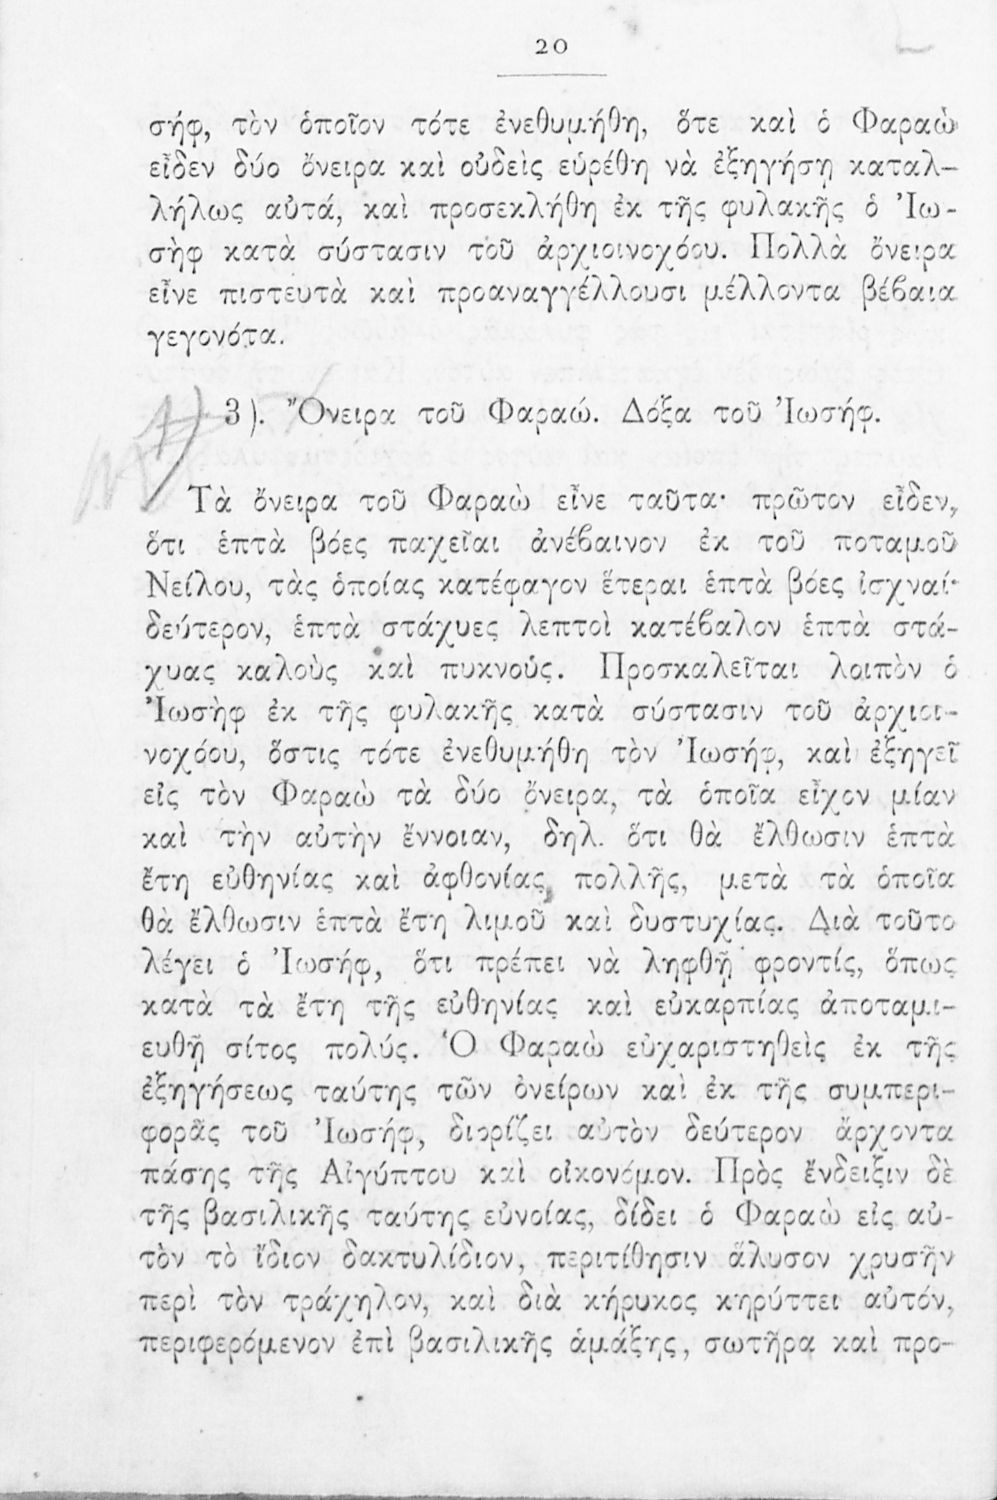 20
σήφ, τὸν ὁποῖον τότε ἐνεθυμήθη, ὅτε καὶ ὁ Φαραὼ
εἶδεν δύο ὄνειρα καὶ οὐδεὶς εὑρέθη νὰ ἐξηγήσῃ καταλ-
λήλως αὐτά, καὶ προσεκλήθη ἐκ τῆς φυλακῆς ὁ Ἰω-
σὴφ κατὰ σύστασιν τοῦ ἀρχιοινοχόου. Πολλὰ ὄνειρα
εἶνε πιστευτὰ καὶ προαναγγέλλουσι μέλλοντα βέβαια
γεγονότα.
3). Ὄνειρα τοῦ Φαραώ. Δόξα τοῦ Ἰωσήφ.
Τὰ ὄνειρα τοῦ Φαραὼ εἶνε ταῦτα· πρῶτον εἶδεν,
ὅτι ἑπτὰ βόες παχεῖαι ἀνέβαινον ἐκ τοῦ ποταμοῦ
Νείλου, τὰς ὁποίας κατέφαγον ἕτεραι ἑπτὰ βόες ἰσχναί·
δεύτερον, ἑπτὰ στάχυες λεπτοὶ κατέβαλον ἑπτὰ στά-
χυας καλοὺς καὶ πυκνούς. Προσκαλεῖται λοιπὸν ὁ
Ἰωσὴφ ἐκ τῆς φυλακῆς κατὰ σύστασιν τοῦ ἀρχιοι-
νοχόου, ὅστις τότε ἐνεθυμήθη τὸν Ἰωσήφ, καὶ ἐξηγεῖ
εἰς τὸν Φαραὼ τὰ δύο ὄνειρα, τὰ ὁποῖα εἶχον μίαν
καὶ τὴν αὐτὴν ἔννοιαν, δηλ. ὅτι θὰ ἔλθωσιν ἑπτὰ
ἔτη εὐθηνίας καὶ ἀφθονίας πολλῆς, μετὰ τὰ ὁποῖα
θὰ ἔλθωσιν ἑπτὰ ἔτη λιμοῦ καὶ δυστυχίας. Διὰ τοῦτο
λέγει ὁ Ἰωσήφ, ὅτι πρέπει νὰ ληφθῇ φροντίς, ὅπως
κατὰ τὰ ἔτη τῆς εὐθηνίας καὶ εὐκαρπίας ἀποταμι-
ευθῇ σίτος πολύς. Ὁ Φαραὼ εὐχαριστηθεὶς ἐκ τῆς
ἐξηγήσεως ταύτης τῶν ὀνείρων καὶ ἐκ τῆς συμπερι-
φορᾶς τοῦ Ἰωσήφ, διορίζει αὐτὸν δεύτερον ἄρχοντα
πάσης τῆς Αἰγύπτου καὶ οἰκονόμον. Πρὸς ἔνδειξιν δὲ
τῆς βασιλικῆς ταύτης εὐνοίας, δίδει ὁ Φαραὼ εἰς αὐ-
τὸν τὸ ἴδιον δακτυλίδιον, περιτίθησιν ἅλυσον χρυσῆν
περὶ τὸν τράχηλον, καὶ διὰ κήρυκος κηρύττει αὐτόν,
περιφερόμενον ἐπὶ βασιλικῆς ἁμάξης, σωτῆρα καὶ προ-